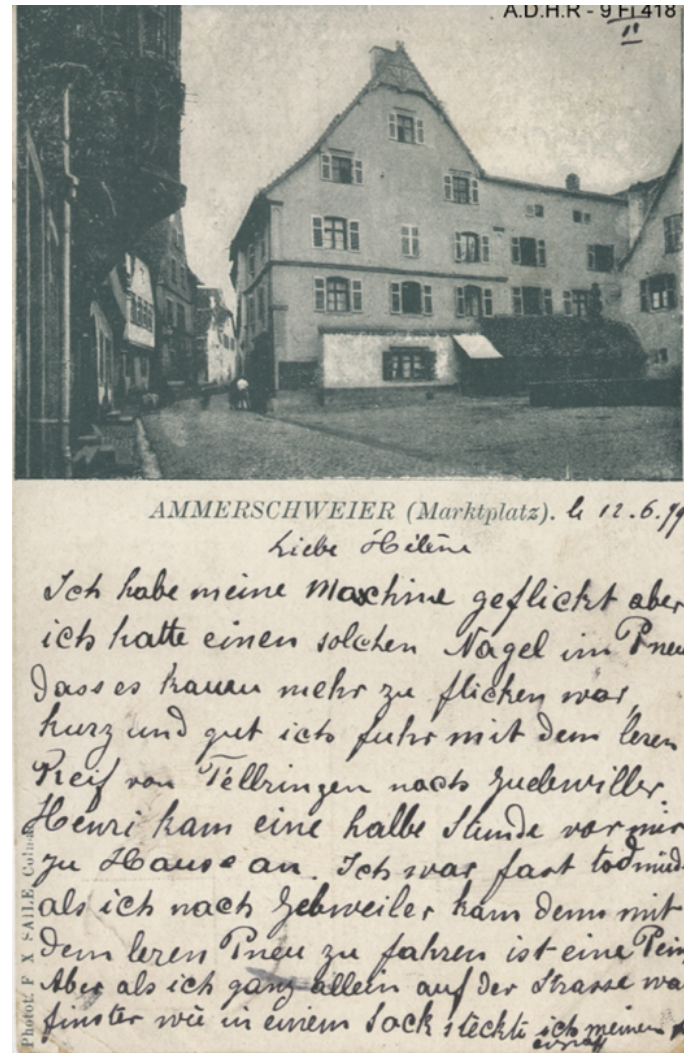 A.D.H.R - 9 Fi 418
II
AMMERSCHWEIER (Marktplatz). le 12.6.99
Liebe Hélène
Ich habe meine Maschine geflickt aber
ich hatte einen solchen Nagel im Pneu
dass es kaum mehr zu flicken war,
kurz und gut ich fuhr mit dem leren
Reif von nach Guebwiller.
Henri kam eine halbe Stunde vor mir
zu Hause an. Ich war fast todmüd
als ich nach Gebweiler kam denn mit
dem leren Pneu zu fahren ist eine Pein
Aber als ich ganz allein auf der Strasse wa
finster wie in einem Sack steckte ich meinen
Phototr. F X SAILE, Colmar